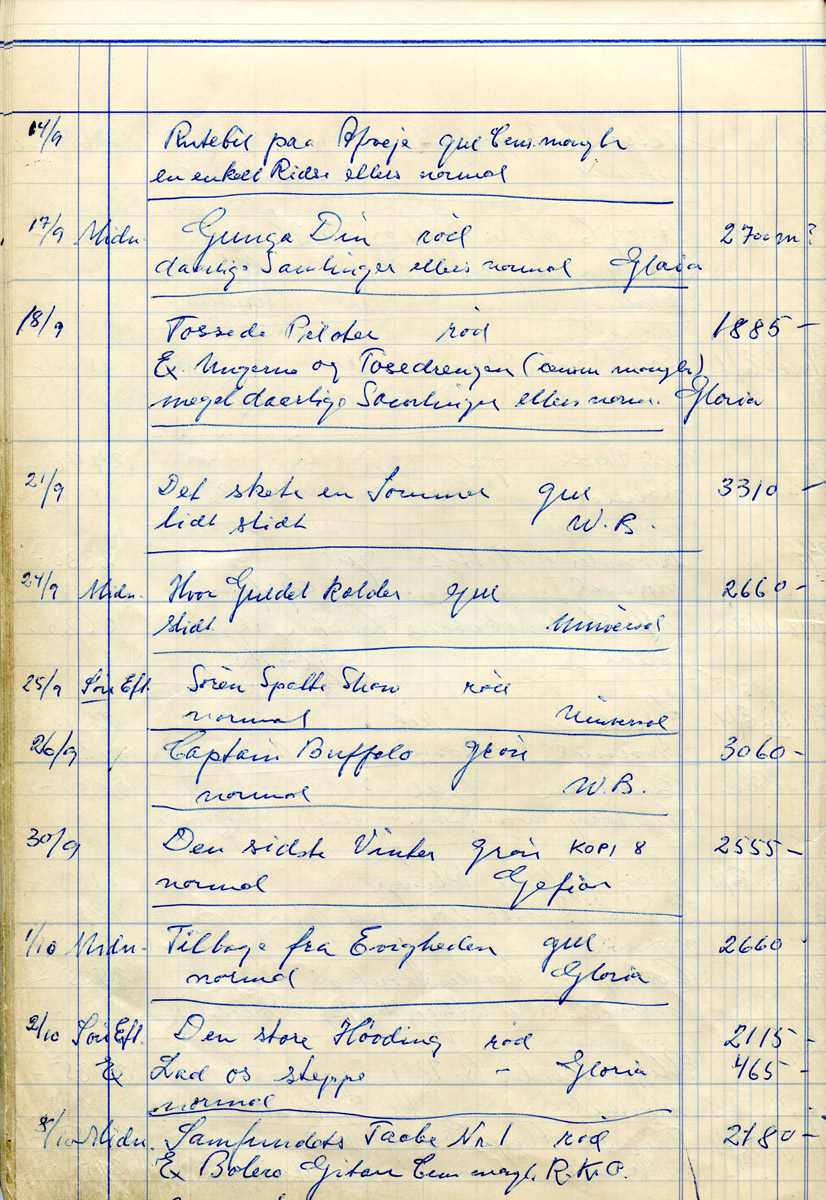 14/9 Rutebil paa Afveje gul Cens. mangler
en enkelt Ridse ellers normal
17/9 Midn. Gunga Din rød 2700m?
daarlige Samlinger ellers normal Gloria
18/9 Tossede Piloter rød 1885 -
Ex. Ungerne og Tosedrengen (censur mangler)
meget daarlige Samlinger ellers norm. Gloria
21/9 Det skete en Sommer gul 3310 -
lidt slidt W.B.
24/9 Midn. Hvor Guldet kalder gul 2660 -
slidt Universal
25/9 Søn Eft. Sören Spætte Show rød
normal Universal
26/9 Captain Buffalo grøn 3060 -
normal W.B.
30/9 Den sidste Vinter grøn KOPI 8 2555 -
normal Gefion
1/10 Midn. Tilbage fra Evigheden gul 2660
normal Gloria
2/10 Søn Eft. Den store Høvding rød 2115 -
Ex Lad os steppe - Gloria 465 -
normal
8/10 Midn. Samfundets Taabe Nr. 1 rød 2180 -
Ex Bolero Gitan Cens mangl. R.K.O.